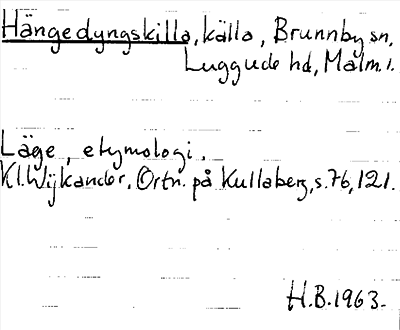 Hängedyngskilla, källa, Brunnby sn,
Luggude hd, Malm. l.
Läge, etymologi.
Kl. Wijkander, Ortn. på Kullaberg, s. 76, 121.
H.B. 1963.